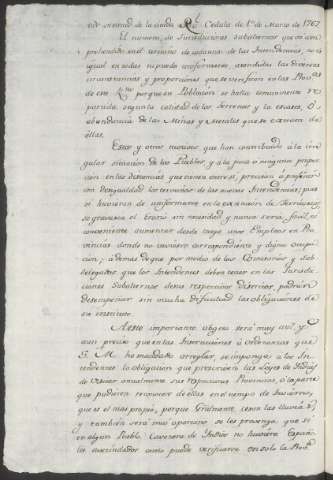 en virtud de la citada Rl. Cedula de 1º de Marzo de 1767
El numero de Jurisdicciones subalternas que va com-
prehendido en el termino de algunas de las Intendencias, no es
igual en todas ni puede uniformarse, atendidas las diversas
circunstancias y proporciones que se versan en las Provas.
de este Reyno, porque su Poblacion se halla comunmente re-
partida segun la calidad de los Terrenos y la escasez, ó
abundancia de las Minas y Metales que se extraen de
ellas.
Este y otros motivos que han contribuido á la irre-
gular situacion de los Pueblos, y á la poca ó ninguna propor-
cion en las distancias que tienen entre si, precisan á
con desigualdad los terrenos de las nuevas Intendencias; pues
si huvieran de uniformarse en la extension de Territorios,
se gravaria el Erario sin necesidad y nunca seria facil, ni
conveniente aumentar desde luego unos Empleos en Pro-
vincias donde no tuviesen correspondiente y digna ocupa-
cion; ademas de que por medio de los Comisarios y Sub-
delegados que los Intendentes deben tener en las Jurisdic-
ciones Subalternas de su respectivo distrito, podrán
desempeñar sin mucha dificultad las obligaciones de
su instituto.
A este importante objeto será muy util y
aun preciso que en las Instrucciones ú Ordenanzas que
S. M. ha mandado arreglar, se imponga á los In-
tendentes la obligacion que prescriven las Leyes de Indias
de visitar anualmente sus respectivas Provincias, ó la parte
que pudieren reconocer de ellas en el tiempo de Invierno,
que es el mas propio, porque Gralmente cesan las lluvias
y tambien será muy oportuno se les prevenga, que si
en algun Pueblo Cavecera de Indios no huviere Españo-
les avecindados como puede verificarse en solo la Prova.